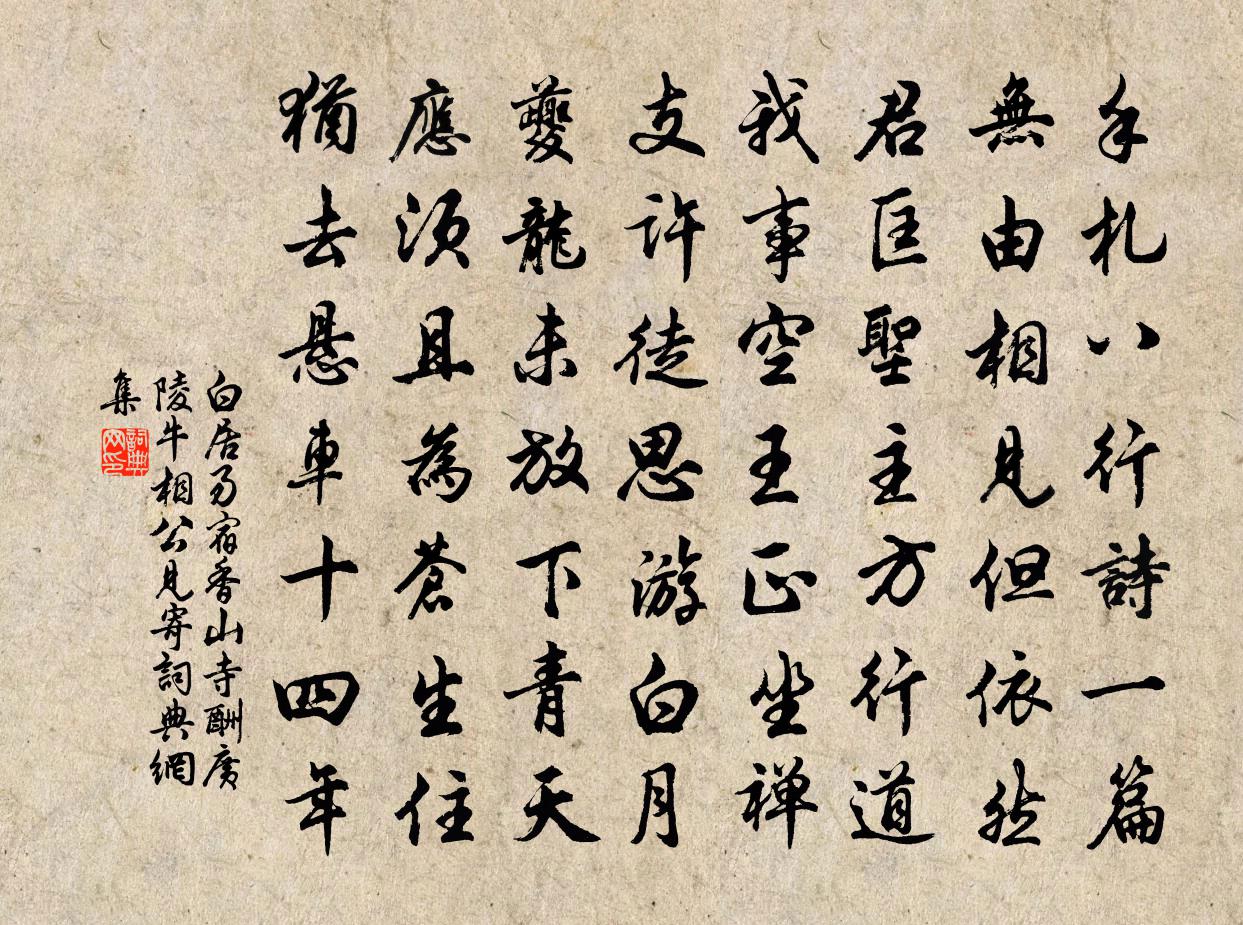 手札八行詩一篇
無由相見但依然
君匡聖主方行道
我事空王正坐禅
支許徒思游白月
夔龍未放下青天
應須且為蒼生住
猶去懸車十四年
白居易宿香山寺酬廣
陵牛相公見寄詞典網
集
詞典网印